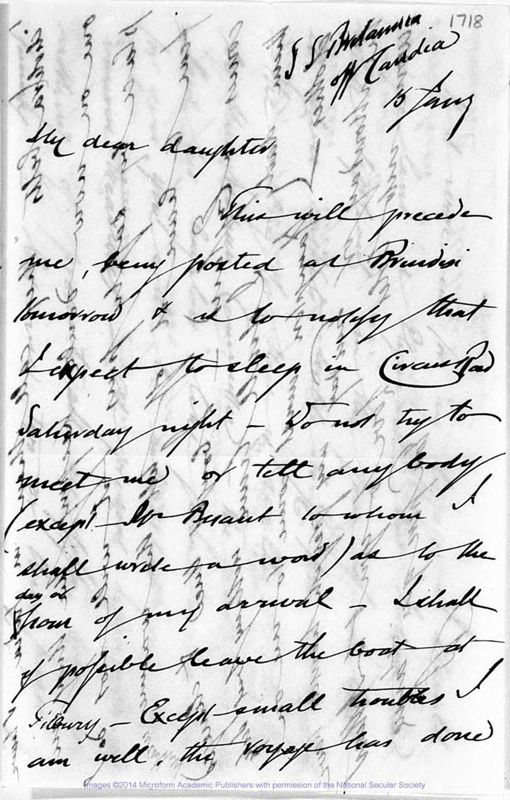 1718
S S Britannia
off Candia
15 Jany
My dear daughter
This will precede
me, being posted at Brindisi
tomorrow & is to notify that
I expect to sleep in Circus Road
Saturday night – Do not try to
meet me or tell any body
(except Mrs Besant to whom I
shall write a word) as to the
day or
hour of my arrival – I shall
if possible leave the boat at
Tilbury – Except small troubles I
am well, the voyage has done
Images ©2014 Microform Academic Publishers with permission of the National Secular Society